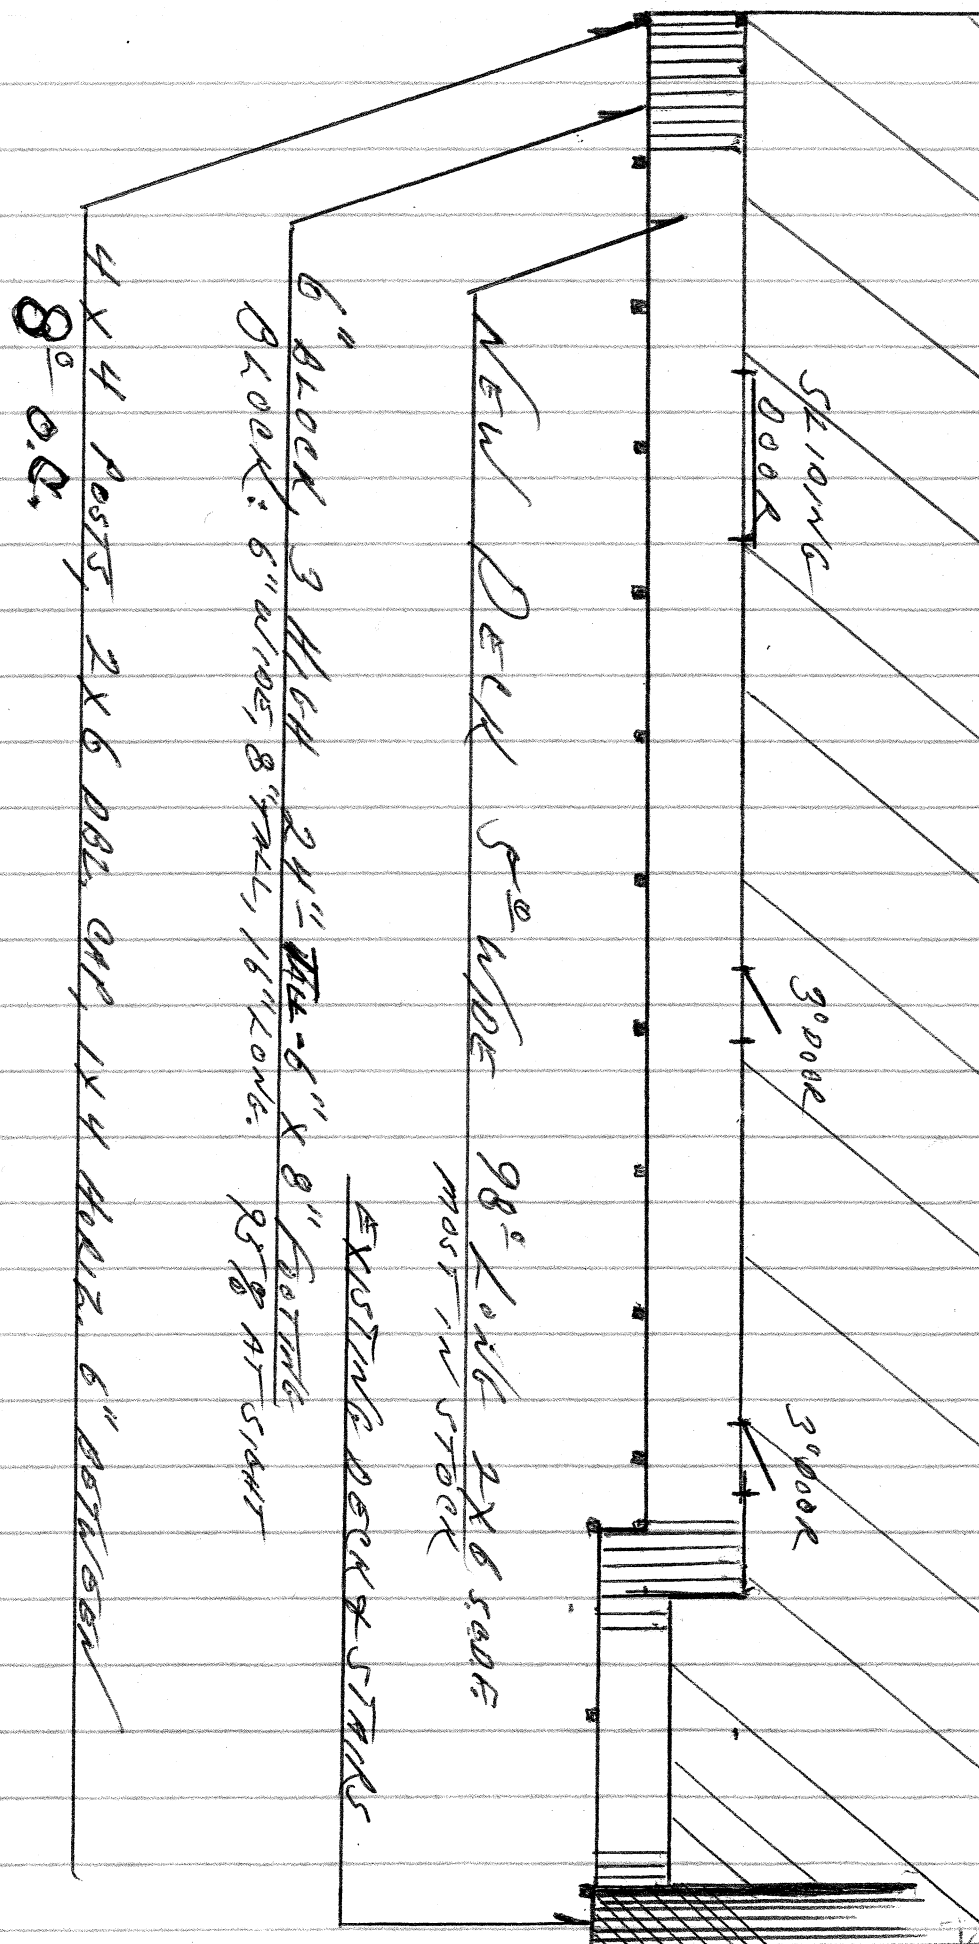 SLIDING
DOOR
3° DOOR
3° DOOR
NEW DECK 5° WIDE 98° LONG 2X6 S4DF.
MOST IN STOCK
EXISTING DECK & STAIRS
6" BLOCK, 3 HIGH 24" TALL - 6" X 8" FOOTING
BLOCK: 6" WIDE, 8" TALL, 16" LONG.
AT SIGHT
4 X 4 POSTS, 2X6 DBL. CAP, 1X4 HORIZ. 6" BETWEEN
8° O.C.